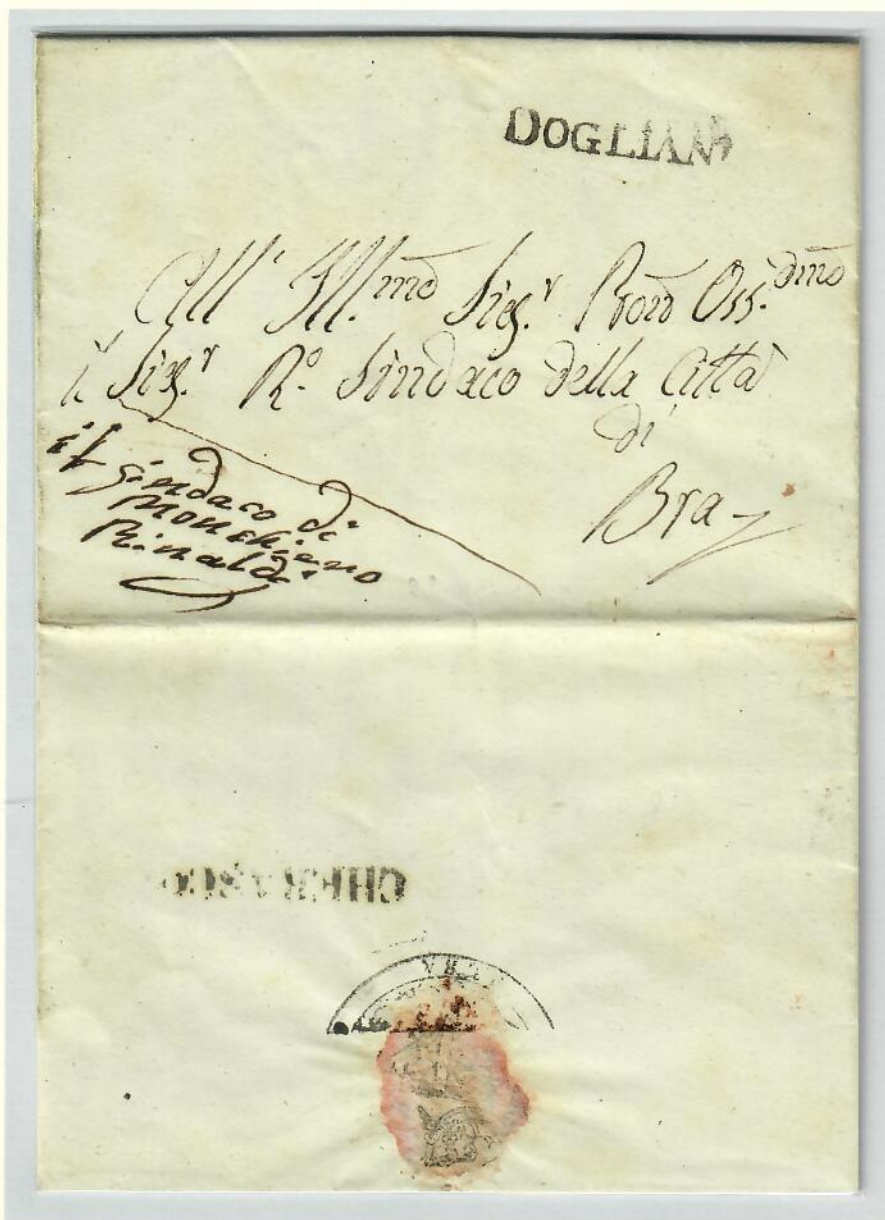 DOGLIANI
All' Ill.mo Sig.r Pron Oss.dmo
il Sig.r R.o Sindaco della Città
di
Bra
il sindaco di
Monchiero
Rinaldi
CHERASCO